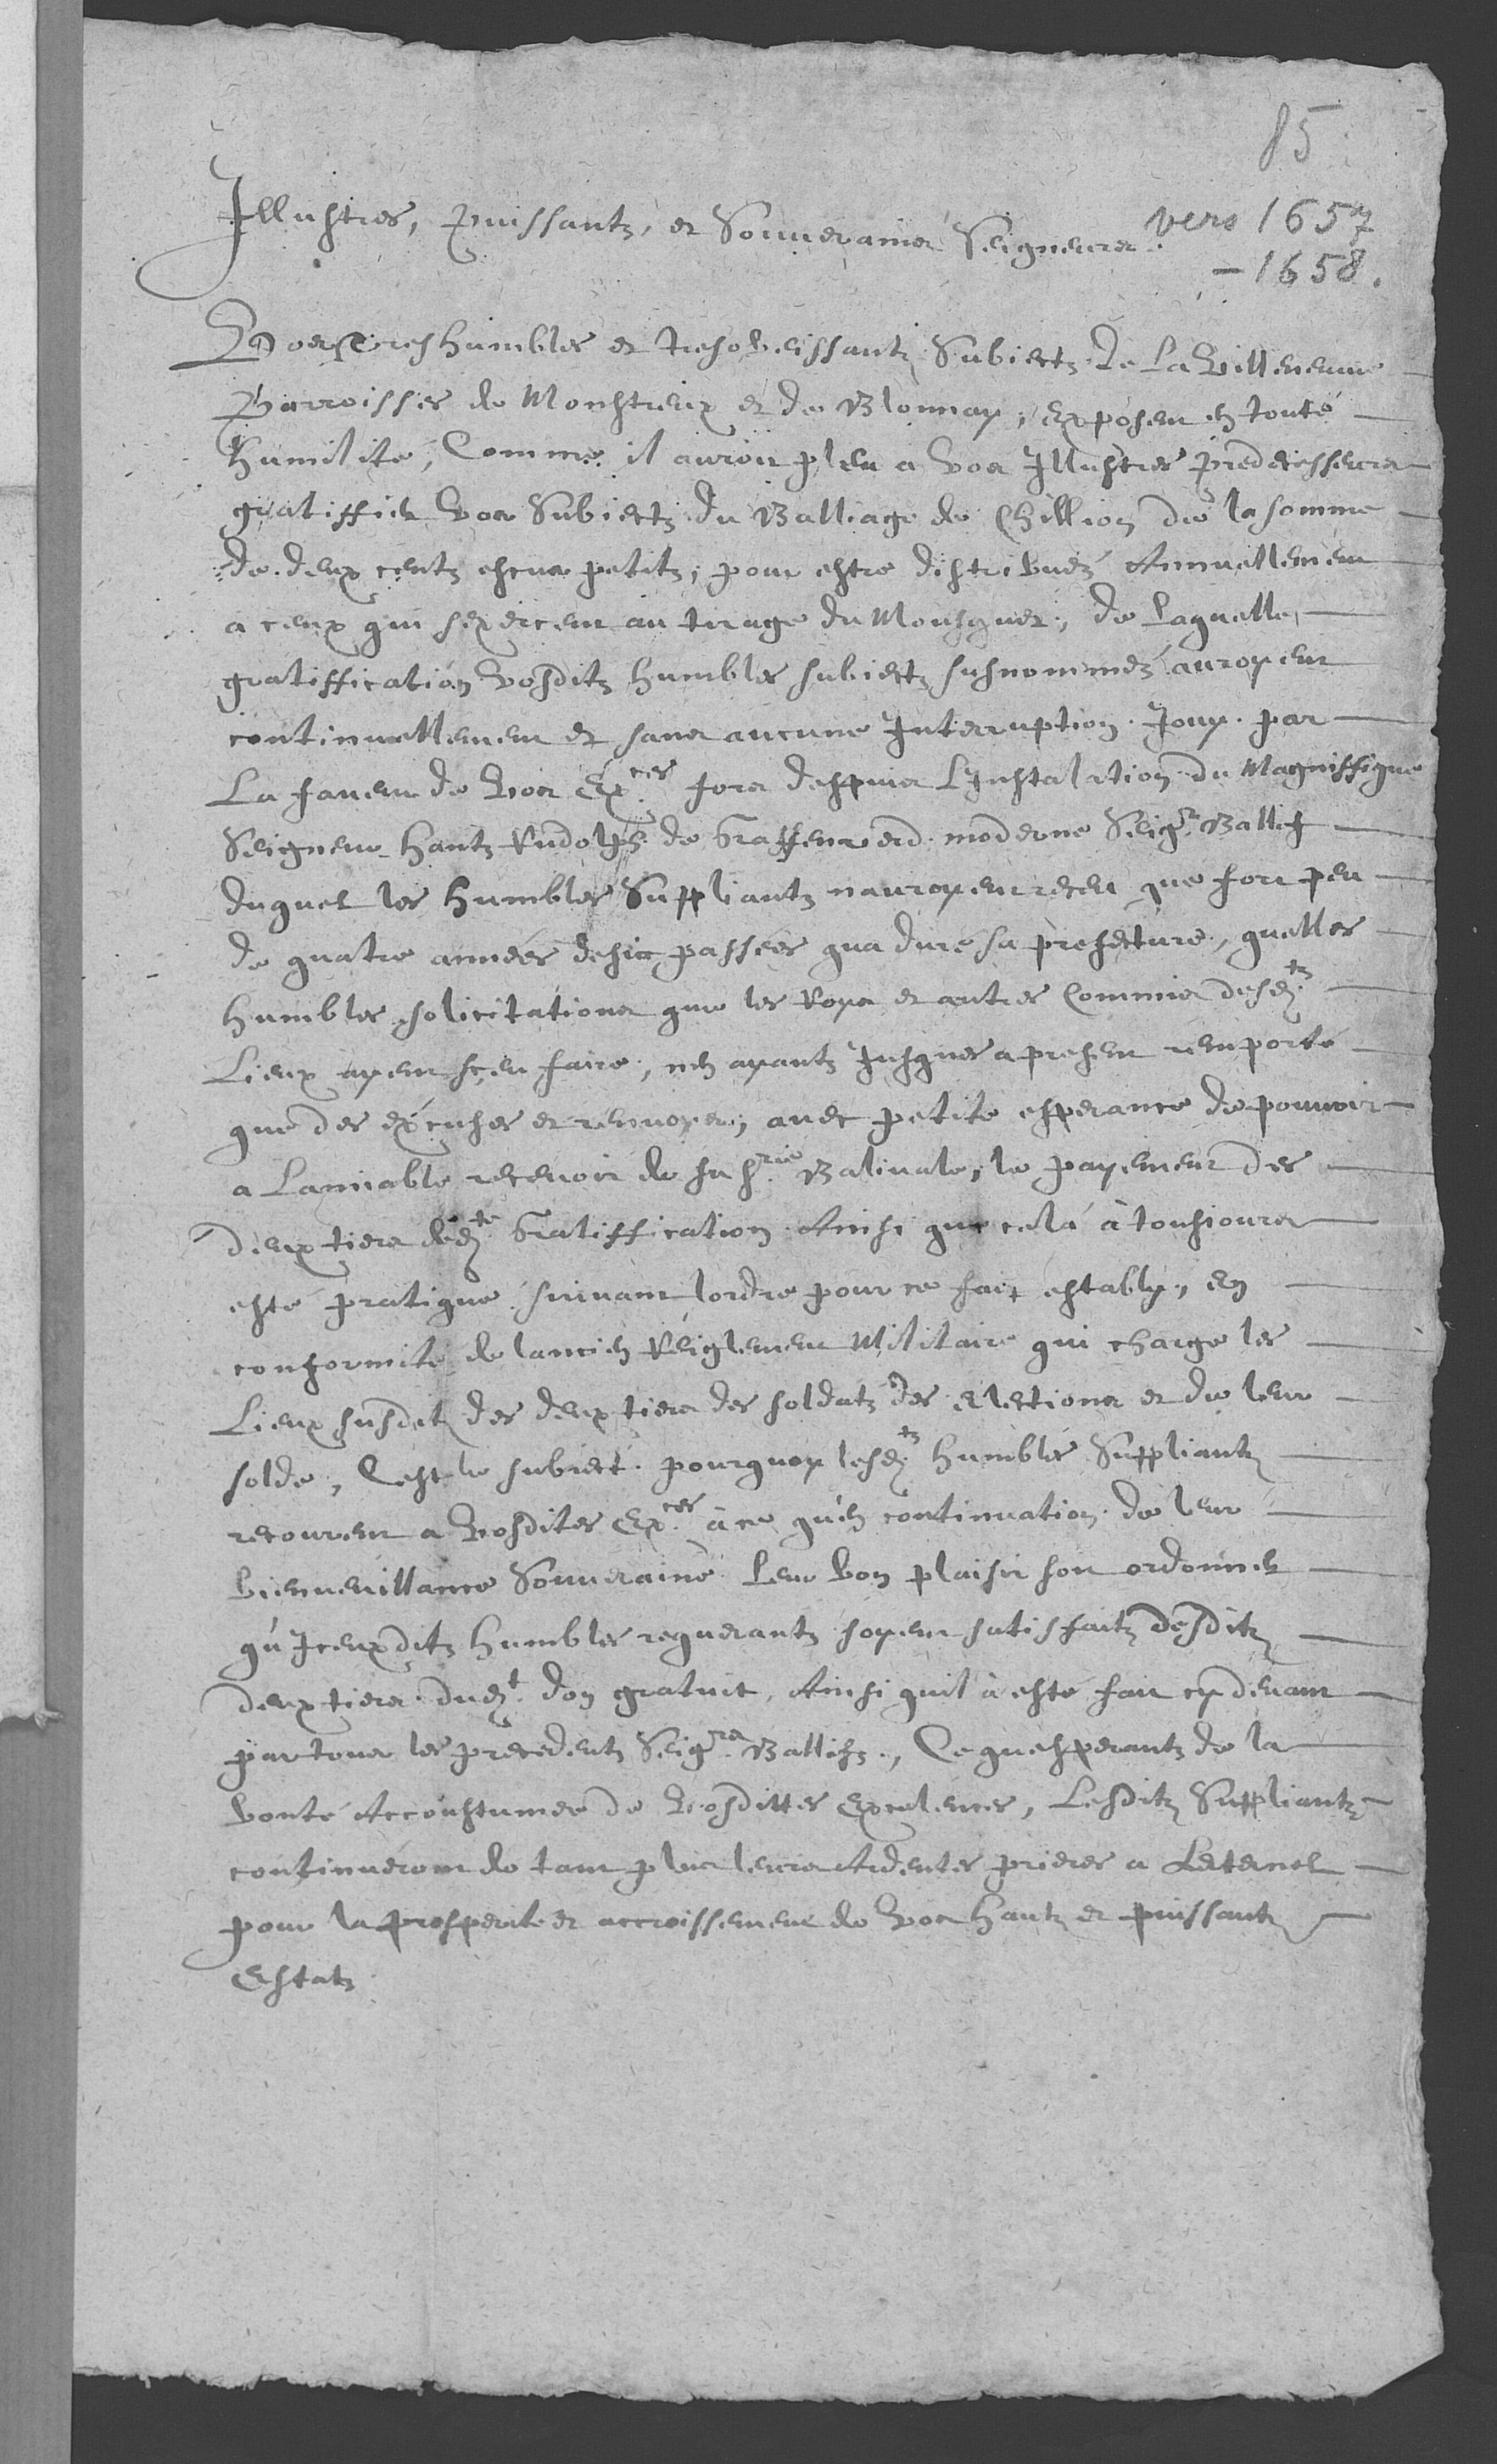 85
Illustres, Puissantz, et Souverains Seigneurs.
vers 1657
- 1658.
Vos Tres humbles et tresobeissantz Subiectz de La Villeneuve
Parroisses de Monstreux et de Blonnay, exposent en toute
humilité, Comme il auroit pleu a vos Illustres predecesseurs
gratiffier vos Subiectz du Balliage de Chillion de la somme
de deux centz escus petitz, pour estre distribués Annuellement
a ceux qui sexercent au tirage du Mousquet, de Laquelle
gratiffication vosditz humbles subiectz susnommés auroyent
continuellement et sans aucune Interruption Jouy par
La faveur de Vos Ex.ces fors despuis Lynstalation du Magniffique
Seigneur Hantz Rudolph de Graffenried moderne Seig.r Ballif
duquel les humbles Suppliantz nauroyent receu que fort peu
de quatre années desia passées qua duré sa prefecture, quelles
humbles solicitations que les Roys et autres Commis desd.tz
Lieux ayent sçeu faire, nen ayantz Jusques a present remporté
que des excuses et renvoyes, avec petite esperance de pouvoir
a Lamiable recevoir de sa S.rie Balivale, le payement des
deux tiers ded.te Gratiffication Ainsi que cela à tousiours
esté pratiqué suivant lordre pour ce fait estably, en
conformité de lancien Reiglement Militaire qui charge les
Lieux susdetz des deux tiers des soldatz des elections et de leur
solde, Cest le subiect pourquoy lesd.tz humbles Suppliantz
recourent a Vosdites Ex.ces à ce qu'en continuation de leur
bienveuillance Souveraine Leur bon plaisir soit ordonner
qu'Iceuxditz humbles requerantz soyent satisfaitz desditz
deux tiers dud.t don gratuit, Ainsi quil à esté fait cy devant
par tous les precedentz Seig.rs Ballifz, Ce quesperantz de la
bonté Accoustumée de Vosdittes Excelences, Lesditz Suppliantz
continueront de tant plus leurs Ardentes prieres a Leternel
pour la prosperité et accroissement de Vos hautz et puissantz
Estatz